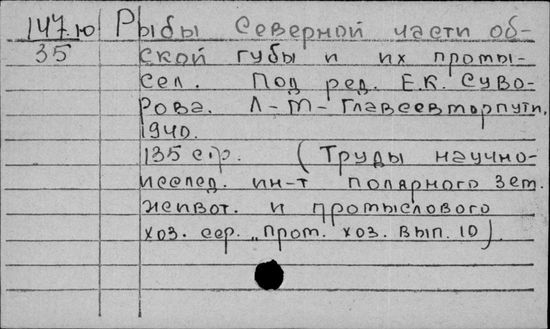 147ю Рыбы Северной части об-
35 ской губы и их промы-
сел. Под ред. Е.К. Суво-
рова. Л-М- Главсевморпути,
1940.
135 стр. (Труды научно-
исслед. ин-т полярного зем.
живот. и промыслового
хоз. сер. „пром. хоз. вып. 10).